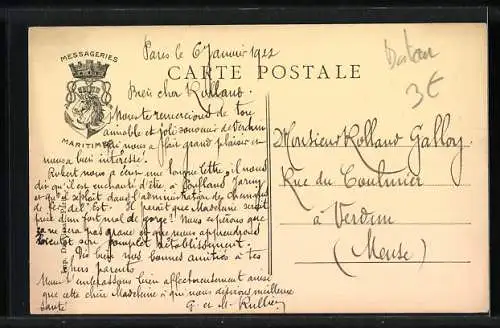 Paris le 6 Janvier 1922
MESSAGERIES
MARITIMES
CARTE POSTALE
Dakar
3€
Bien cher Rolland.
Nous te remercions de ton
aimable et joli souvenir de Verdun
qui nous a fait grand plaisir et
nous a bien intéressé.
Robert nous a écrit une longue lettre, il nous
dit qu'il est enchanté d'être à Conflans Jarny
et qu'il se plait dans l'administration des chemins
de fer de l'Est. Il paraît que Madeleine serait
prise d'un fort mal de gorge? Nous espérons que
ce ne sera pas grave et que nous apprendrons
bientôt son complet rétablissement.
Dis bien nos bonnes amitiés à tes
chers parents
Nous t'embrassons bien affectueusement ainsi
que cette chère Madeleine à qui nous désirons meilleure
santé
G. et M.
Monsieur Rolland Galloy
Rue du
à Verdun
(Meuse)